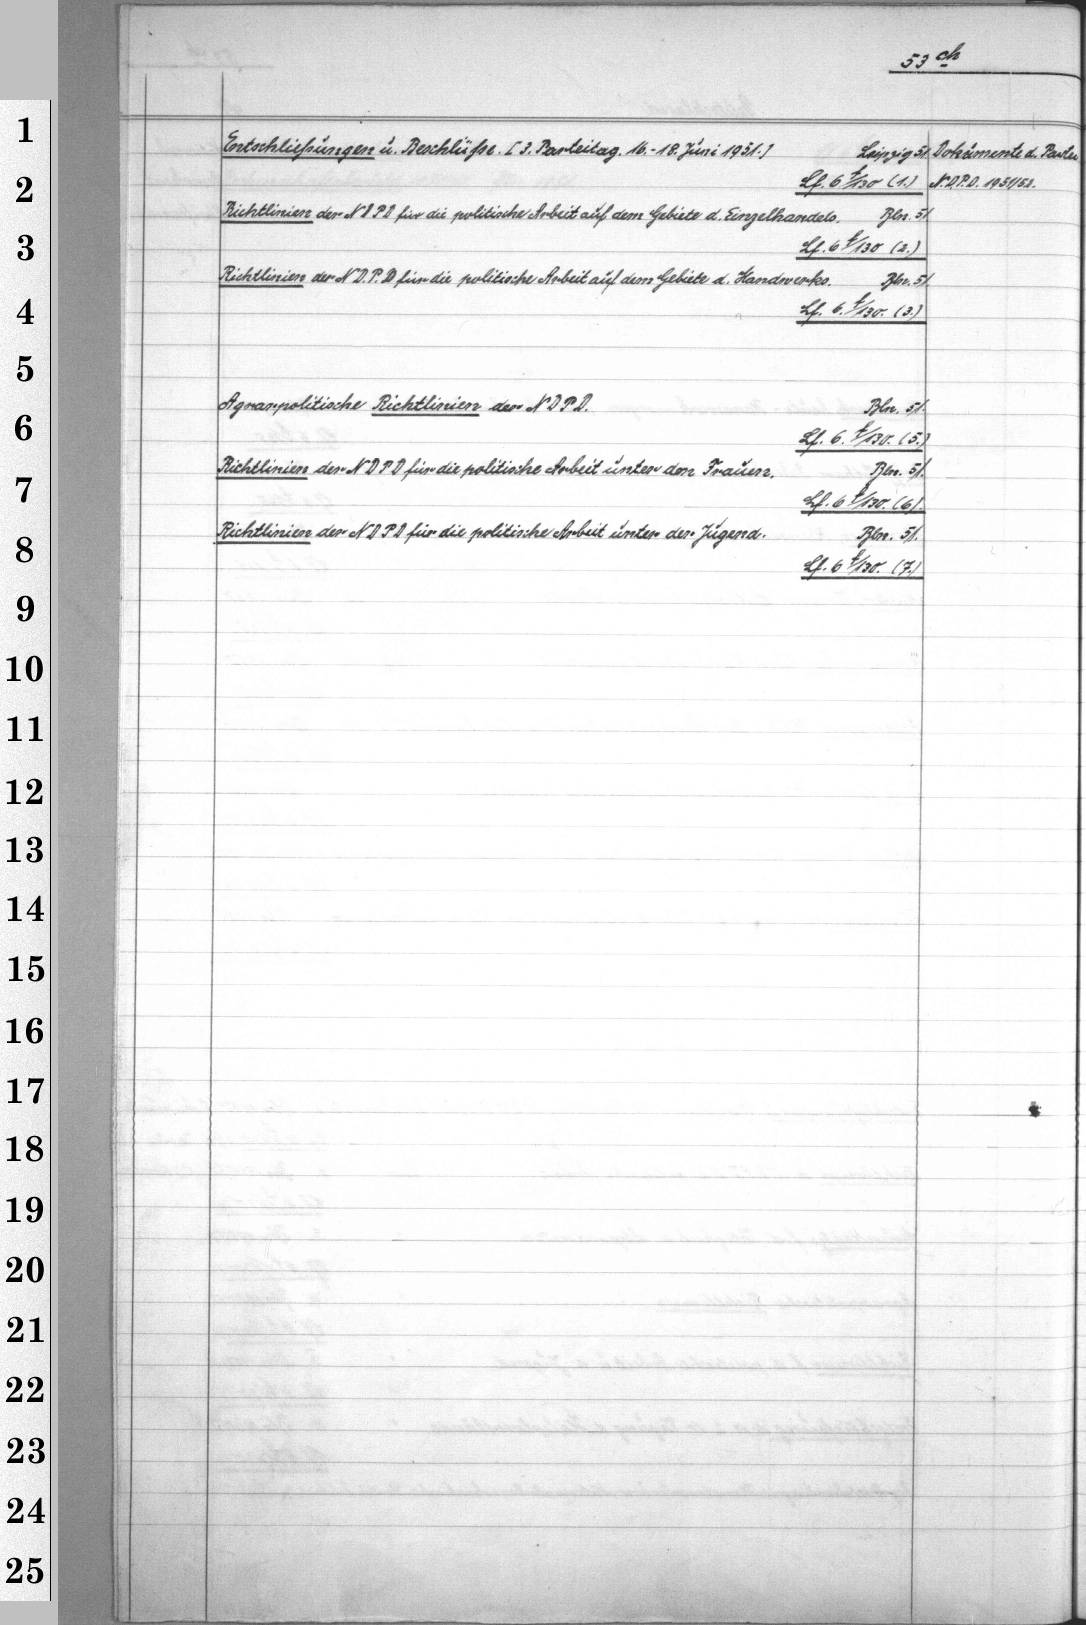 53 ch
1
Entschließungen u. Beschlüsse. [3. Parteitag. 16.-18. Juni 1951.] Leipzig 51 Dokumente d. Partei
2
Lf. 6 t/130 (1.) N.D.P.D. 1951/52.
Richtlinien der NDPD für die politische Arbeit auf dem Gebiete d. Einzelhandels. Bln. 51
3
Lf. 6 t/130 (2.)
Richtlinien der N.D.P.D für die politische Arbeit auf dem Gebiete d. Handwerks. Bln. 51
4
Lf. 6. t/130. (3.)
5
Agrarpolitische Richtlinien der NDPD. Bln. 51.
6
Lf. 6. t/130. (5.)
Richtlinien der NDPD für die politische Arbeit unter den Frauen. Bln. 51.
7
Lf. 6 t/130. (6).
Richtlinien der NDPD für die politische Arbeit unter der Jugend. Bln. 51.
8
Lf. 6 t/130. (7.)
9
10
11
12
13
14
15
16
17
18
19
20
21
22
23
24
25